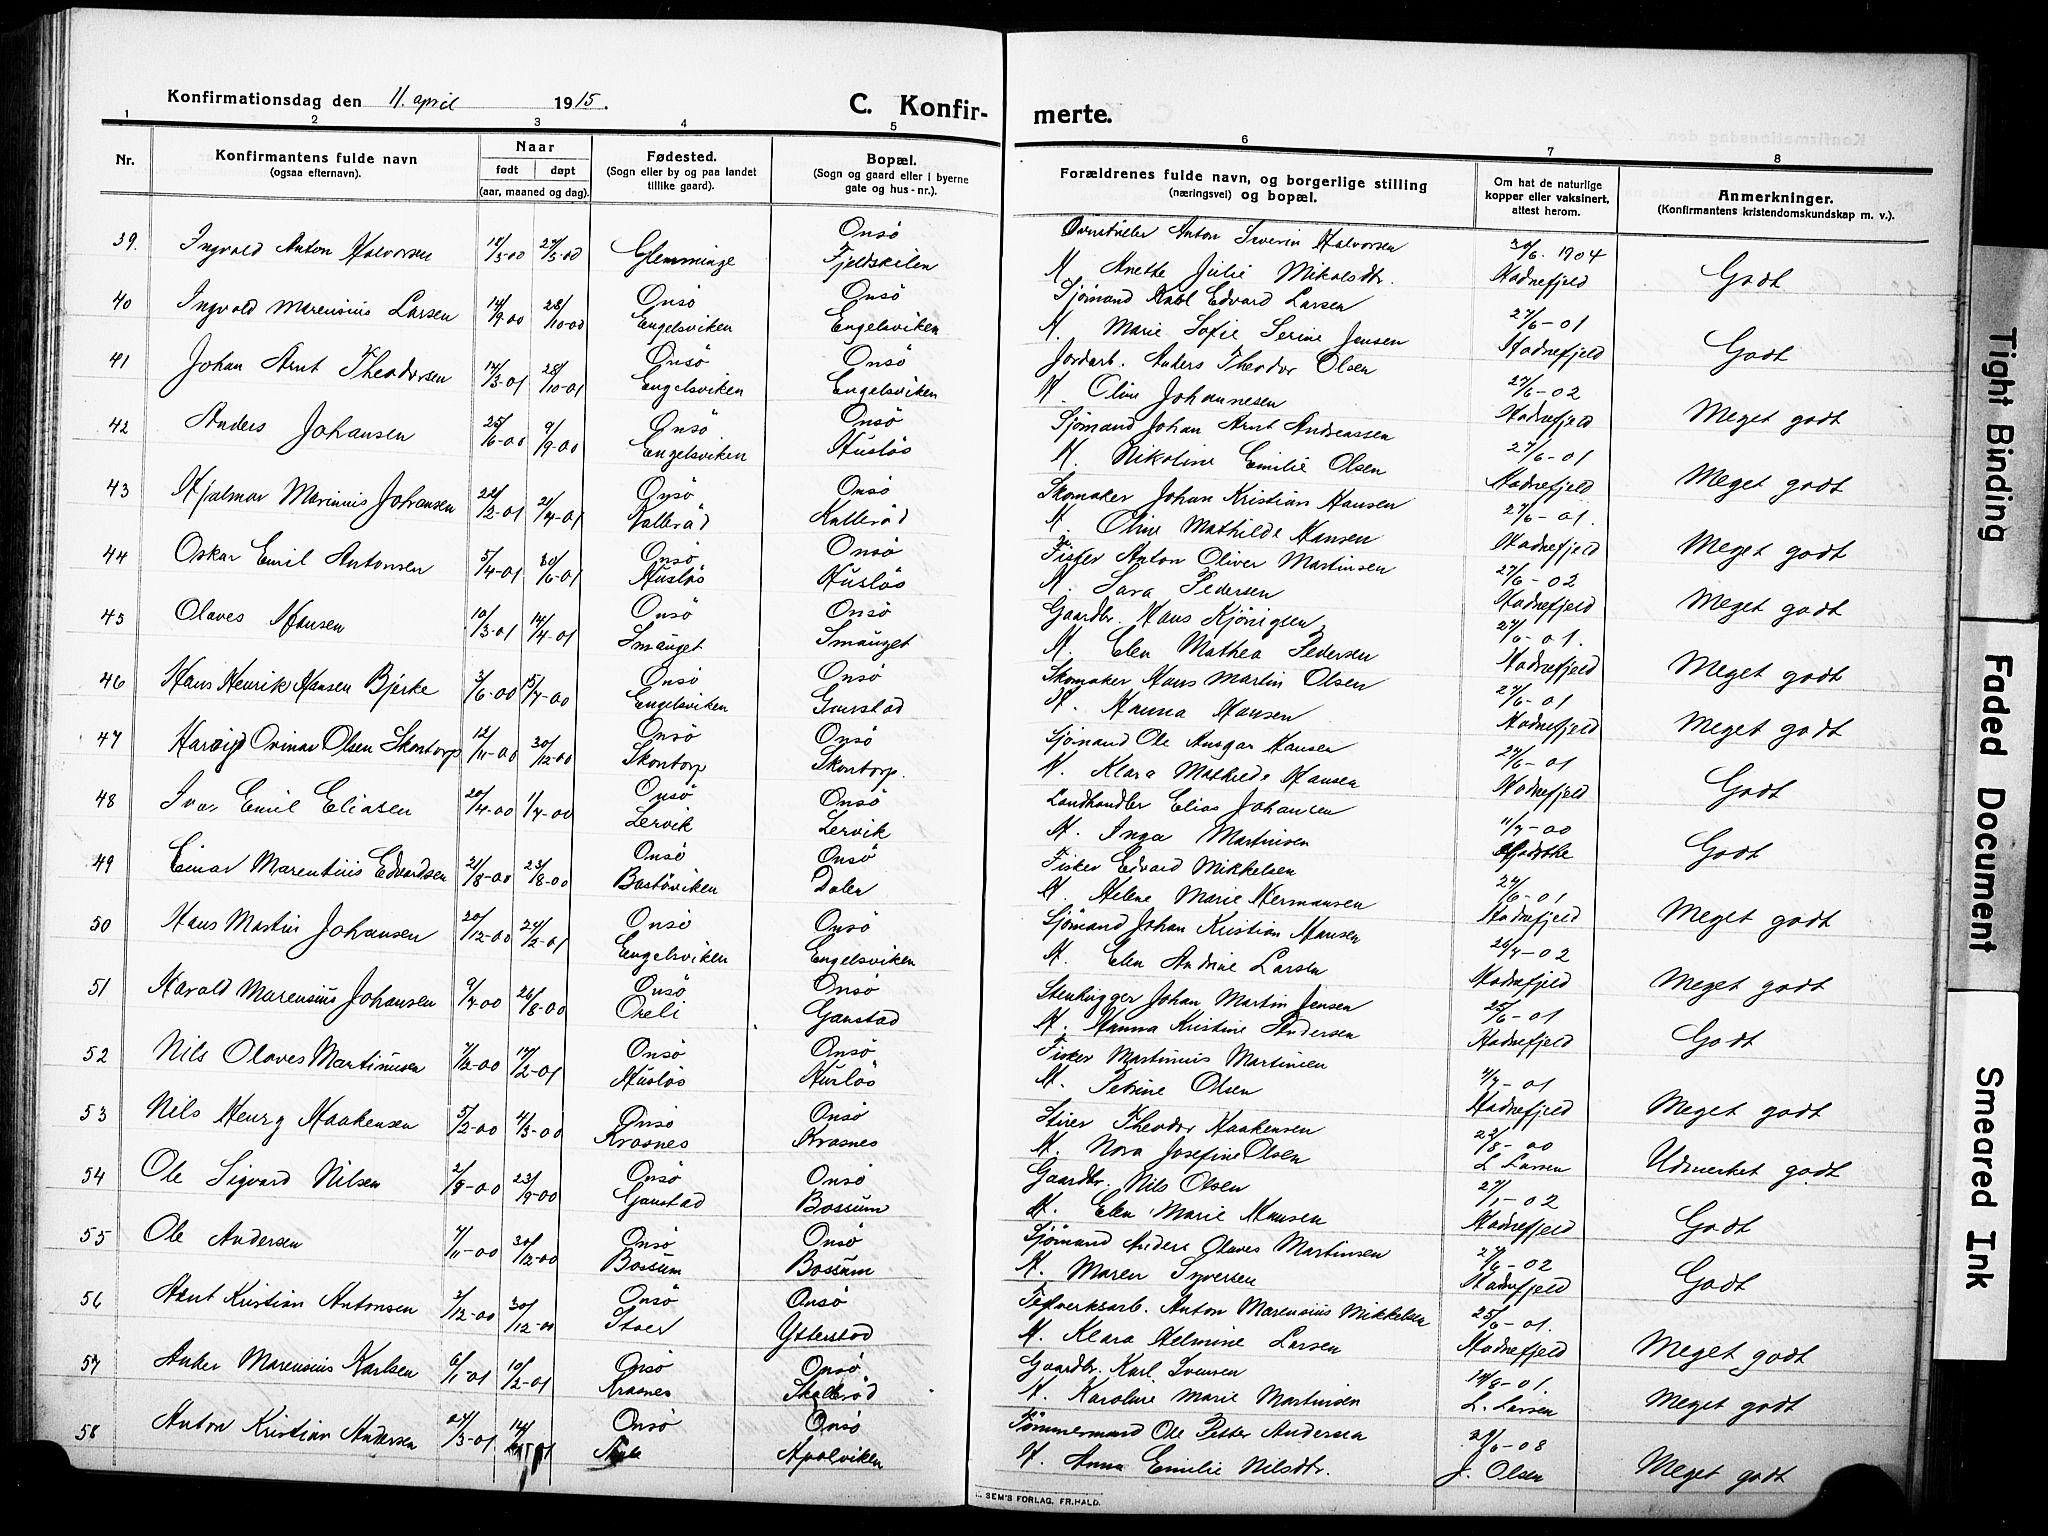 Konfirmationsdag den 11. april 1915.
C. Konfir-
merte.
1 2 3 4 5 6 7 8
Nr.
Konfirmantens fulde navn
(ogsaa efternavn).
Naar
født døpt
(aar, maaned og dag).
Fødested.
(Sogn eller by og paa landet
tillike gaard).
Bopæl.
(Sogn og gaard eller i byerne
gate og hus-nr.).
Forældrenes fulde navn, og borgerlige stilling
(næringsvei) og bopæl.
Om hat de naturlige
kopper eller vaksinert,
attest herom.
Anmerkninger.
(Konfirmantens kristendomskundskap m. v.).
39. Ingvald Anton Halvorsen 18/3-00 27/5-00 Glemminge Onsö Fjeldskilen
Anton Severin Halvorsen 30/6. 1904
H. Anette Julie Mikalsdtr. Hadnefjeld Godt
40 Ingvald Marensius Larsen 14/9 00 28/10-00 Onsö Engelsviken Onsö Engelsviken
Sjömand Karl Edvard Larsen 27/6-01
H. Marie Sofie Serine Jensen Hadnefjeld Godt
41 Johan Arnt Theodorsen 14/3-01 28/10-01 Onsö Engelsviken Onsö Engelsviken
Jordarb. Anders Theodor Olsen 27/6-02
H. Oline Johannesen Hadnefjeld Meget godt
42 Anders Johansen 25/6-00 9/9-00 Onsö Engelsviken Onsö Husløs
Sjömand Johan Arnt Andreassen 27/6-01
H. Nikoline Emilie Olsen Hadnefjeld Meget godt
43 Hjalmar Marinius Johansen 22/2-01 21/4-01 Onsö Kallerød Onsö Kallerød
Skomaker Johan Kristian Hansen 27/6-01.
H. Oline Mathilde Hansen Hadnefjeld Meget godt
44 Oskar Emil Antonsen 5/4-01 30/6-01 Onsö Husløs Onsö Husløs
Fisker Anton Oliver Martinsen 27/6-02
H. Sara Pedersen Hadnefjeld Meget godt
45 Olaves Hansen 10/3-01 14/4-01 Onsö Smauget Onsö Smauget
Gaardbr. Hans Kjönigsen 27/6-01.
H. Elen Mathea Pedersen Hadnefjeld Meget godt
46 Hans Henrik Hansen Bjerke 3/6-00 15/7-00 Onsö Engelsviken Onsö
Skomaker Hans Martin Olsen 27/6-01
H. Hanna Hansen Hadnefjeld Meget godt
47 Olsen Skontorp 12/11-00 30/12-00 Onsö Skontorp Onsö Skontorp.
Sjömand Ole Ansgar Hansen 27/6-01
H. Klara Mathilde Hansen Hadnefjeld Godt
48 Ivar Emil Eliasen 20/4-00 1/7-00 Onsö Lervik Onsö Lervik
Landhandler Elias Johansen 11/7-00
H. Inga Martinsen Godt
49 Einar Marentius Edvardsen 21/8-00 23/8-00 Onsö Onsö Dalen
Fisker Edvard Mikkelsen 27/6-01
H. Helene Marie Hermansen Hadnefjeld Meget godt
50 Hans Martin Johansen 20/12-00 24/2-01 Onsö Engelsviken Onsö Engelsviken
Sjömand Johan Kristian Hansen 26/7-02
H. Elen Andrine Larsen Hadnefjeld Meget godt
51 Harald Marensius Johansen 9/7-00 26/8-00 Onsö Oreli Onsö Ganstad
Stenhugger Johan Martin Jensen 25/6-01
H. Hanna Kristine Andersen Hadnefjeld Godt
52 Nils Olaves Martinusen 7/12-00 17/2-01 Onsö Husløs Onsö Husløs
Fisker Martinius Martinsen 4/7-01
H. Petrine Olsen Hadnefjeld Meget godt
53 Nils Henry Haakensen 5/2-00 4/3-00 Onsö Kraanes Onsö Kraanes
Theodor Haakensen 22/8-00
H. Nora Josefine Olsen L Larsen Udmerket godt
54 Ole Sigvard Nilsen 2/8-00 23/9-00 Onsö Ganstad Onsö Bossum
Gaardbr. Nils Olsen 27/5-02
H. Elen Marie Hansen Hadnefjeld Godt
55 Ole Andersen 7/11-00 30/12-00 Onsö Bossum Onsö Bossum
Sjömand Anders Olaves Martinsen 27/6-02
H. Maren Syversen Hadnefjeld Godt
56 Arnt Kristian Antonsen 3/12-00 30/12-00 Onsö Onsö Ytterstad
Teglverksarb. Anton Marensius Mikkelsen 25/6-01.
H. Klara Helmine Larsen Hadnefjeld Meget godt
57 Anker Marensius Karlsen 6/1-01 10/2-01 Onsö Kraanes Onsö
Gaardbr. Karl Svensen 14/8-01.
H. Karoline Marie Martinsen L. Larsen Meget godt
58 Anton Kristian Andersen 27/3-01 14/ Onsö Onsö Apalviken
Tömmermand Ole Petter Andersen 29/6-08
H. Anna Emilie Nilsdtr. J. Olsen Meget godt
SEM'S FORLAG, FR.HALD.
Tight Binding
Faded Document
Smeared Ink